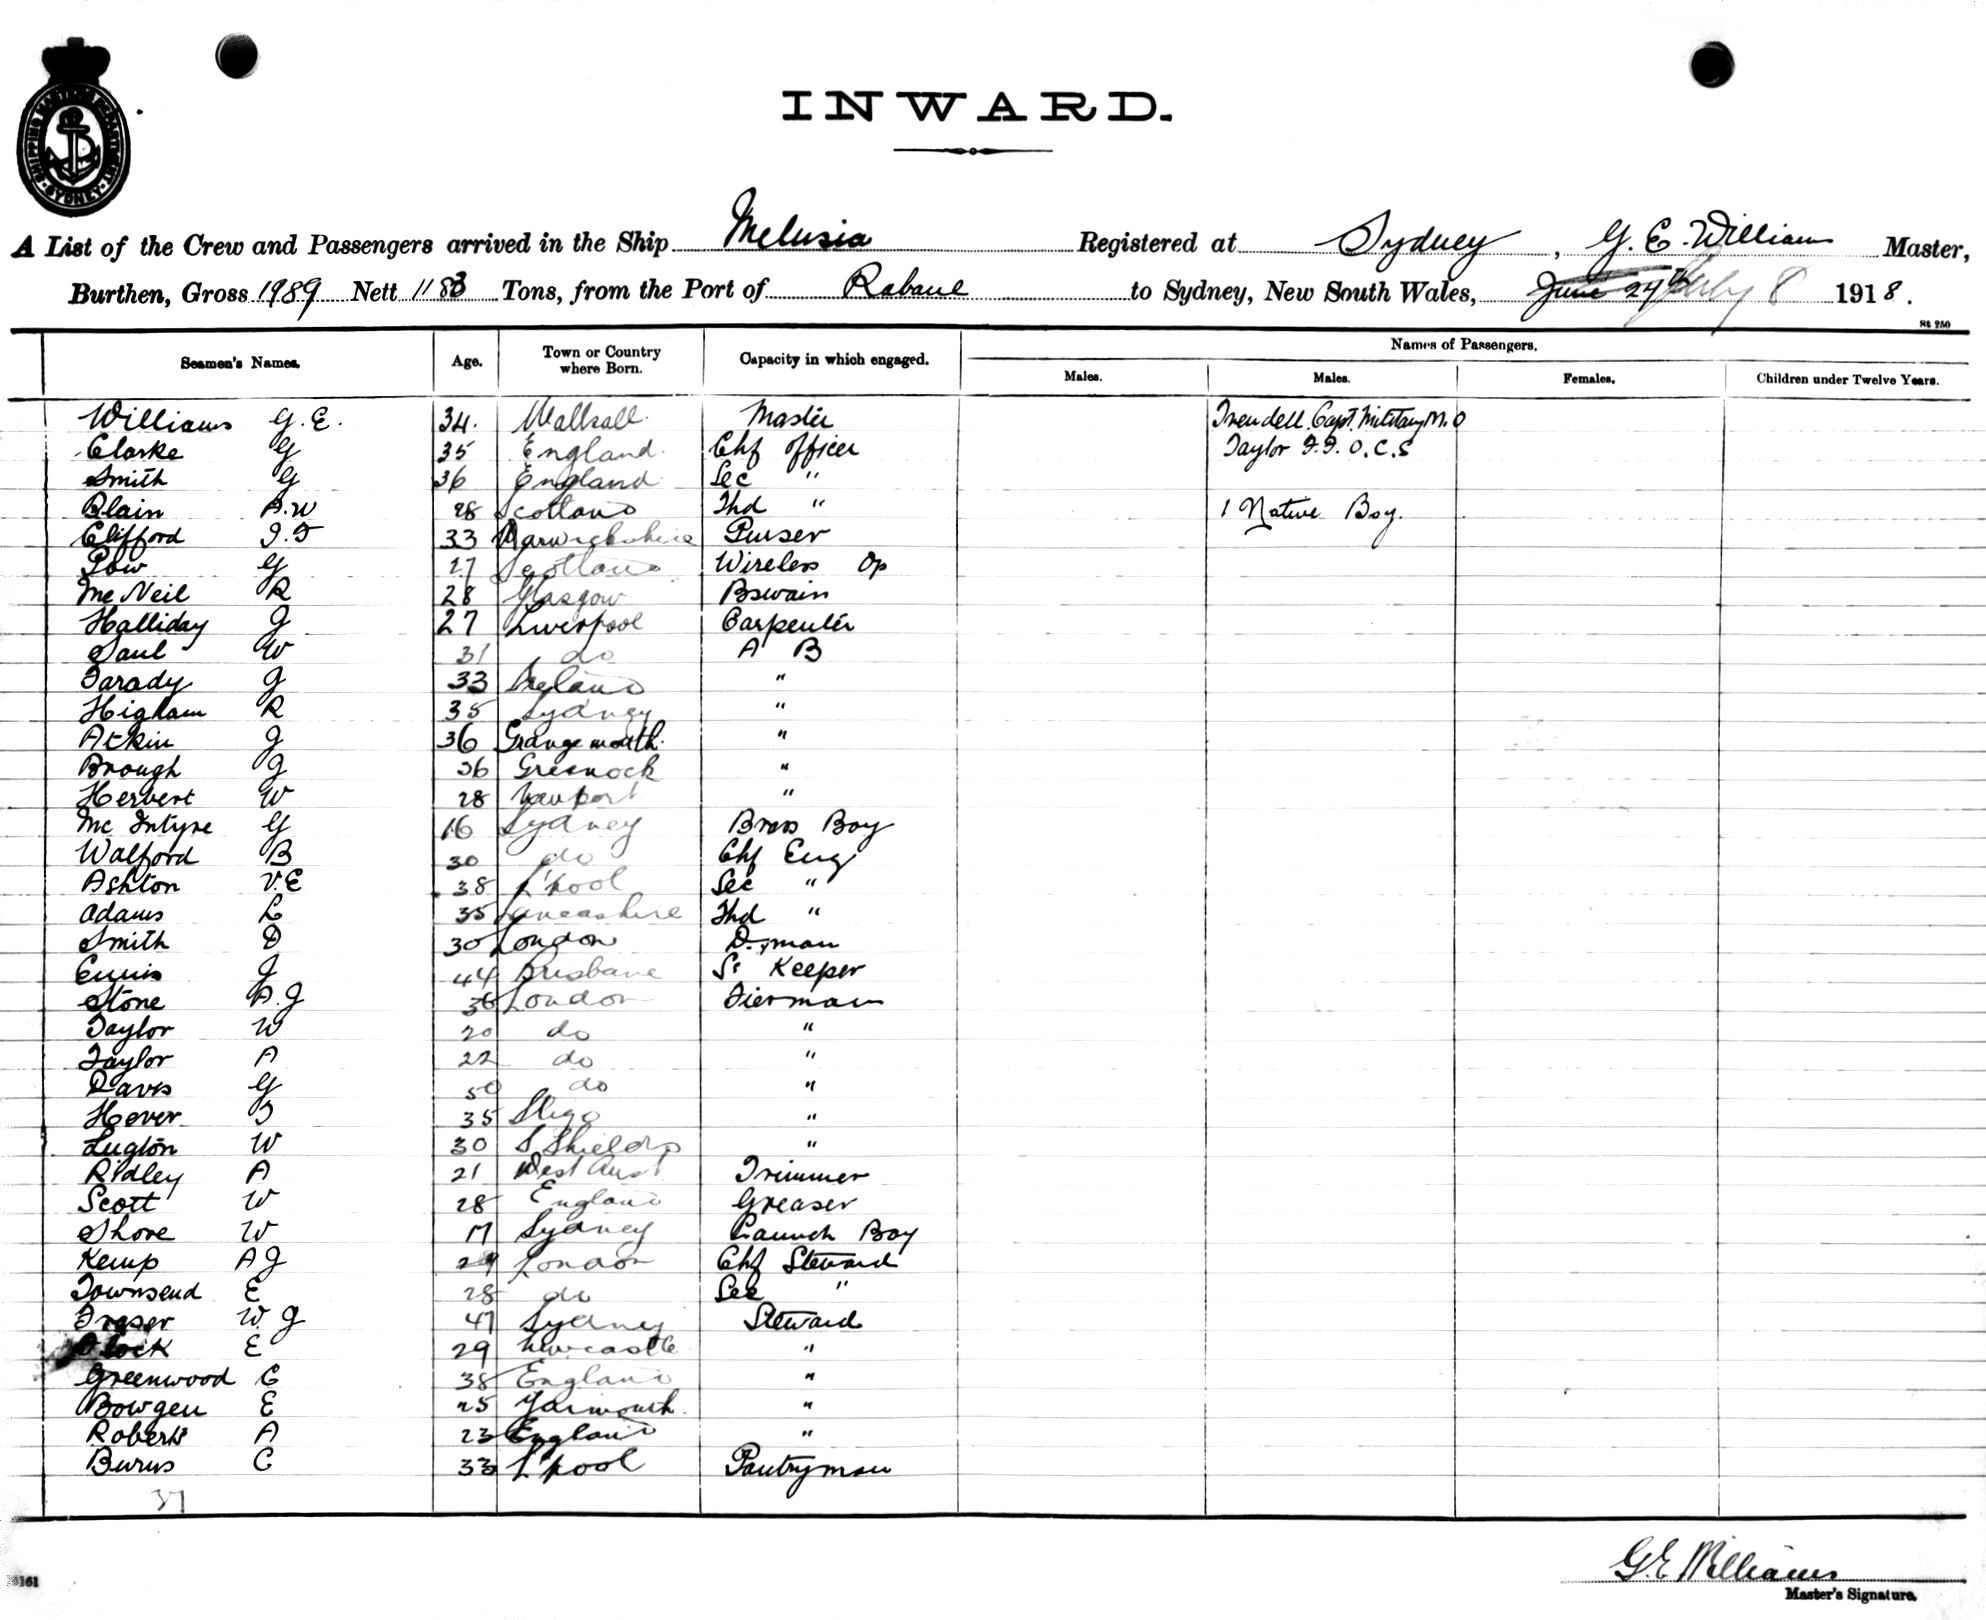 SHIPPING MASTER'S DEPARTMENT SYDNEY
INWARD.
A List of the Crew and Passengers arrived in the Ship Melusia Registered at Sydney, G. E. Williams Master,
Burthen, Gross 1989 Nett 1183 Tons, from the Port of Rabaul to Sydney, New South Wales, June 24th July 8 1918.
St 250
Seamen's Names. Age. Town or Country where Born. Capacity in which engaged. Names of Passengers.
Males. Males. Females. Children under Twelve Years.
Williams G. E. 34. Walsall Master Trendell Capt. Military M.O
Clarke G 35 England Chf Officer Taylor F.F. O.C.S
Smith G 36 England Sec "
Blain A.W 28 Scotland Thd " 1 Native Boy.
Clifford J.F 33 Warwickshire Purser
Pow G 27 Scotland Wireless Op
McNeil R 28 Glasgow Bswain
Halliday J 27 Liverpool Carpenter
Saul W 31 do A B
Farady J 33 Ireland "
Higham R 35 Sydney "
Atkin J 36 Grangemouth "
Brough J 36 Greenock "
Herbert W 28 Newport "
McIntyre G 16 Sydney Brass Boy
Walford B 30 do Chf Eng
Ashton V.E 38 L'pool Sec "
Adams L 35 Lancashire Thd "
Smith D 30 London D.man
Ennis J 44 Brisbane St Keeper
Stone A.J 36 London Fierman
Taylor W 20 do "
Taylor A 22 do "
Davis G 50 do "
Hover 35 Sligo "
Lugton W 30 S Shields "
Ridley A 21 West Aust Trimmer
Scott W 28 England Greaser
Shore W 17 Sydney Launch Boy
Kemp A J 29 London Chf Steward
Townsend E 28 do Sec "
Fraser W. J 47 Sydney Steward
E 29 Newcastle "
Greenwood C 38 England "
Bowgen E 25 Yarmouth "
Roberts A 23 England "
Burns C 33 L'pool Pantryman
37
G.E Williams
Master's Signature.
161